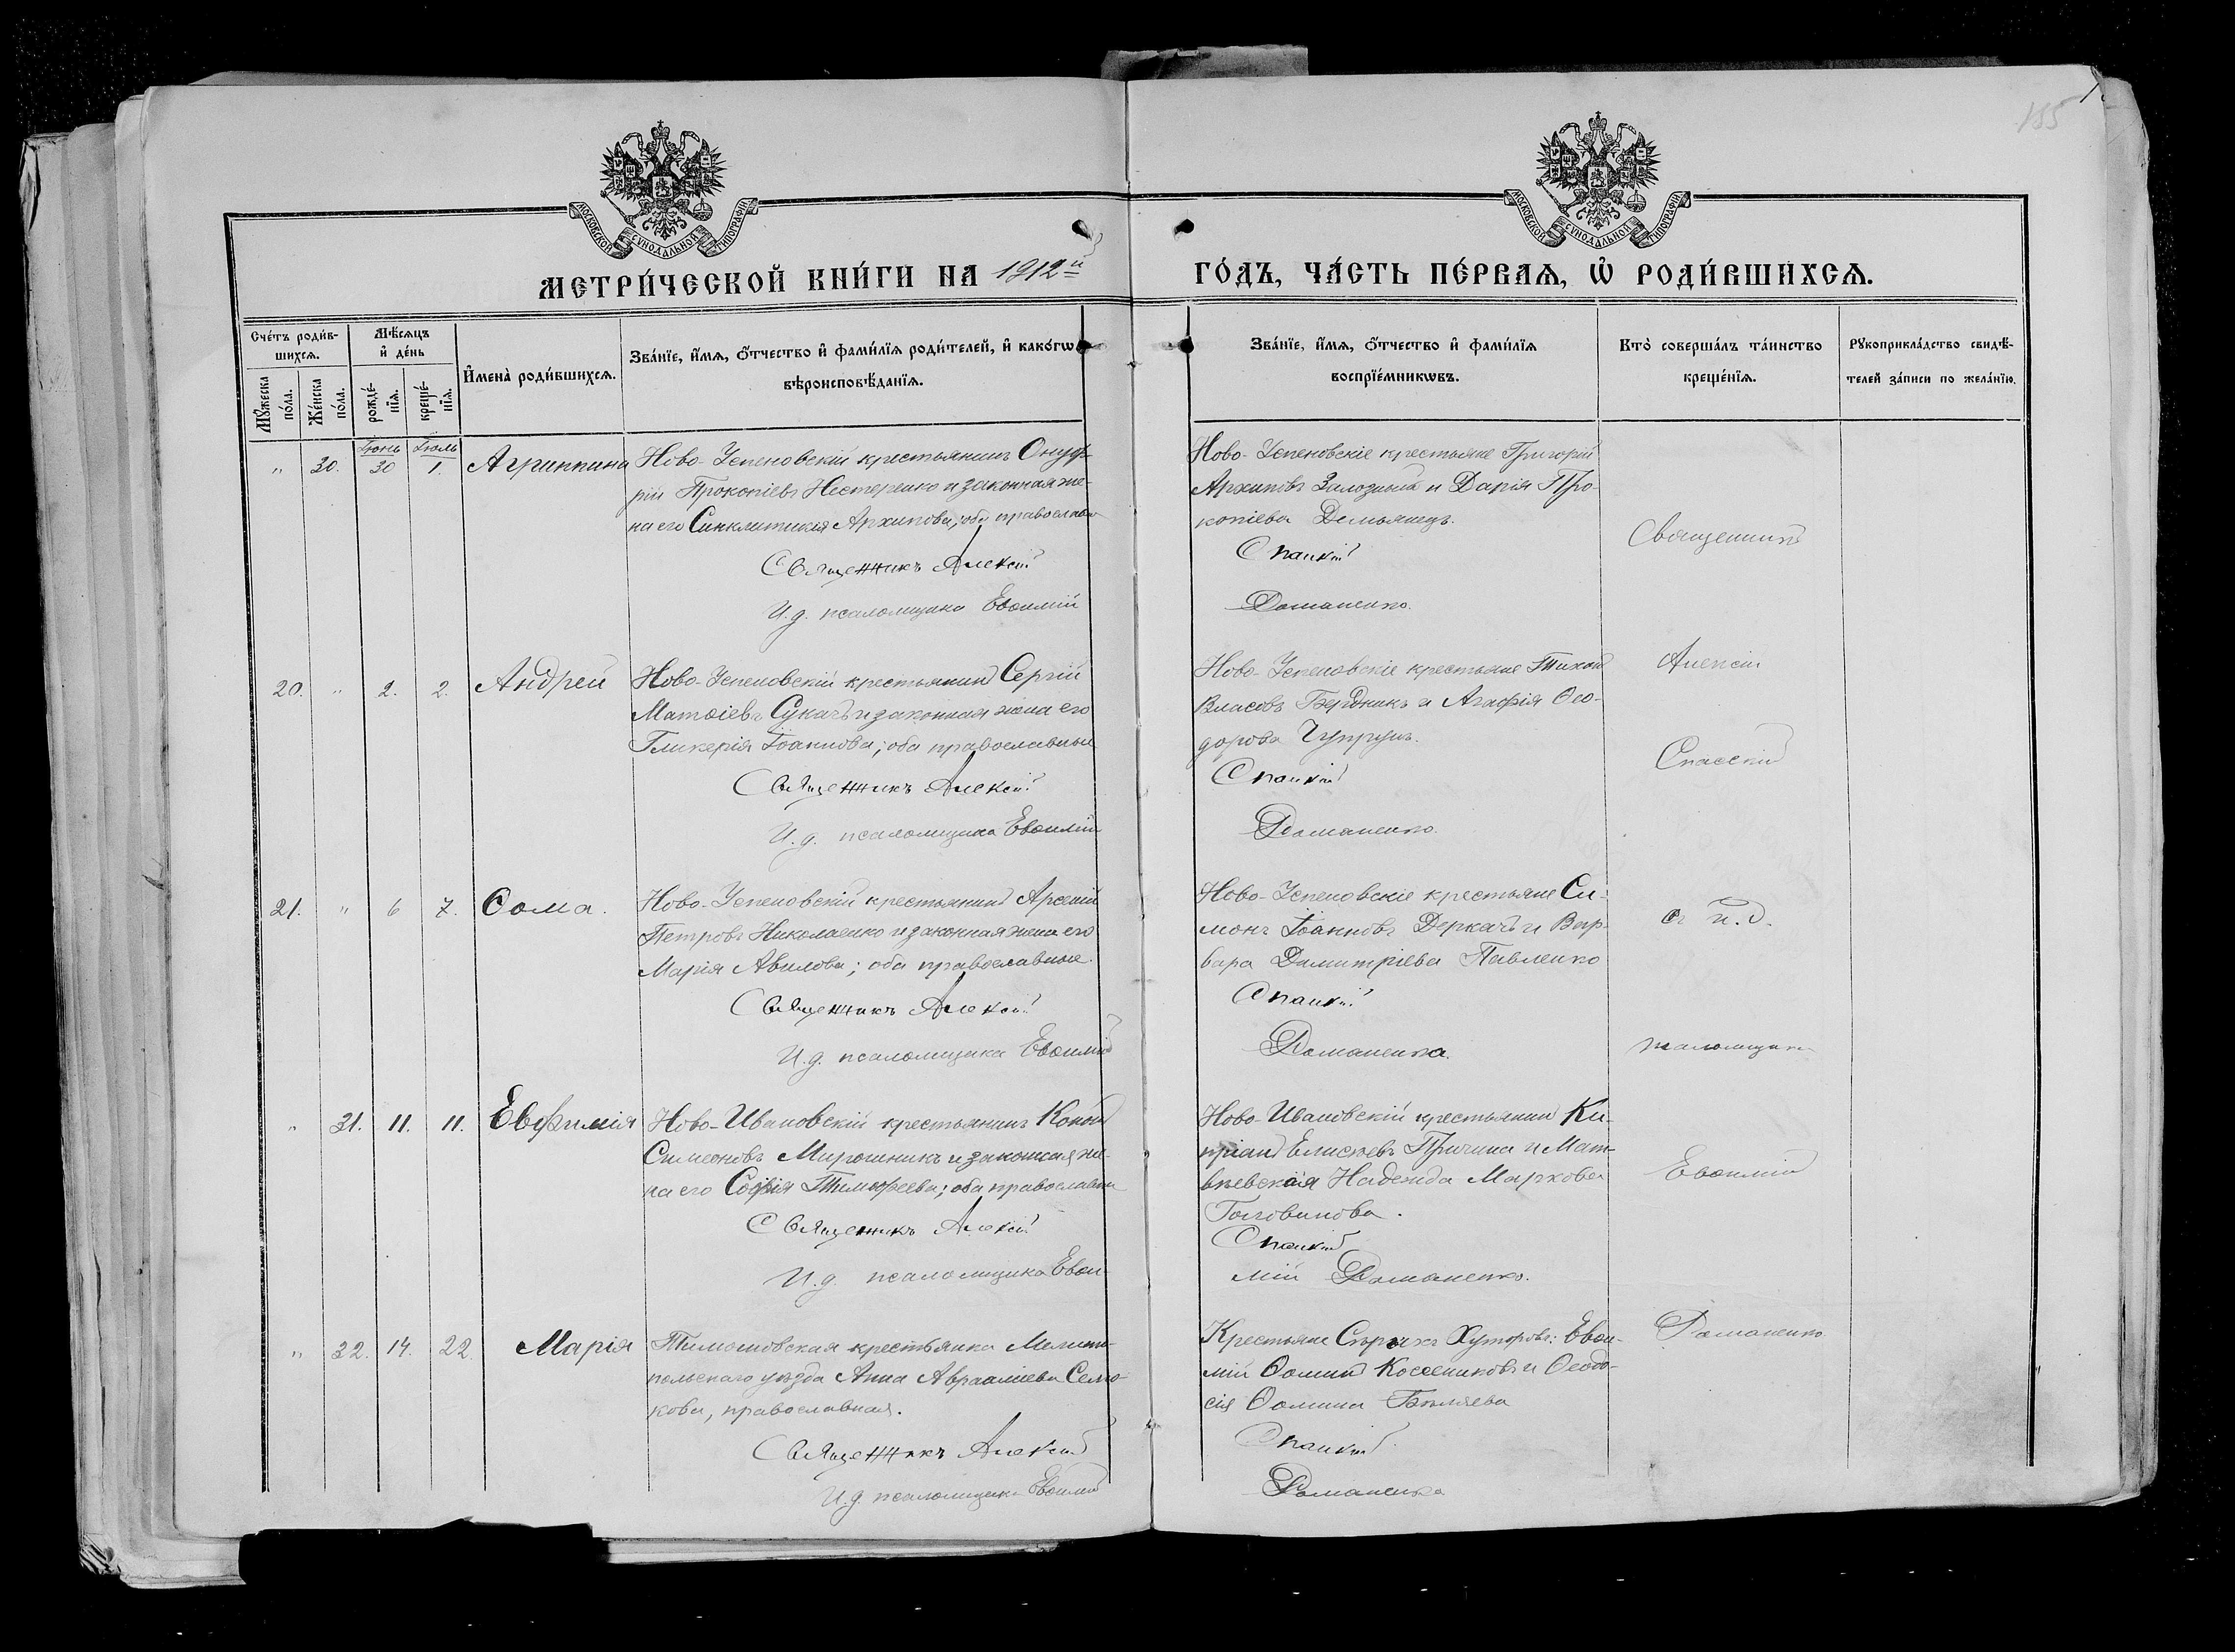 155
МОСКОВСКОЙ СУНОДАЛЬНОЙ ТИПОГРАФІИ
МОСКОВСКОЙ СУНОДАЛЬНОЙ ТИПОГРАФІИ
МЕТРИ́ЧЕСКОЙ КНИ́ГИ НА 1912й ГО́ДЪ, ЧА́СТЬ ПЕ́РВАѦ, Ѡ҆ РОДИ́ВШИХСѦ.
Сче́тъ роди́в-
шихсѧ.
Мꙋ́жеска по́ла.
Же́нска по́ла.
Мѣ́сѧцъ и҆ де́нь
рожде́-нїѧ.
креще́-нїѧ.
И҆мена̀ роди́вшихсѧ.
Зва́нїе, и҆́мѧ, ѻ҆́тчество и҆ фами́лїѧ роди́телей, и҆ како́гѡ
вѣроисповѣ́данїѧ.
Зва́нїе, и҆́мѧ, ѻ҆́тчество и҆ фами́лїѧ
воспрїе́мникѡвъ.
Кто̀ соверша́лъ та́инство
креще́нїѧ.
Рꙋкоприкла́дство свидѣ́-
телей за́писи по жела́нїю.
Іюнь Іюль
" 30. 30 1. Агриппина
Ново-Успеновскій крестьянинъ Онуф-
рій Прокопіевъ Нестеренко и законная же-
на его Синклитикія Архипова; оба православн
Священникъ Алексій
И.д. псаломщика Евѳимій
Ново-Успеновскіе крестьяне Григорій
Архиповъ Залозный и Дарія Про-
копіева Демьянецъ.
Спасскій
Романенко.
20. " 2. 2. Андрей
Ново-Успеновскій крестьянинъ Сергій
Матѳіевъ Сукачъ и законная жена его
Гликерія Іоаннова; оба православные
Священникъ Алексій
И.д. псаломщика Евѳимій
Ново-Успеновскіе крестьяне Тихонъ
Власовъ Бердникъ и Агафія Ѳео-
дорова Чупрунъ.
Спасскій
Романенко.
21. " 6 7. Ѳома.
Ново-Успеновскій крестьянинъ Арсеній
Петровъ Николаенко и законная жена его
Марія Авилова; оба православные.
Священникъ Алексій
И.д. псаломщика Евѳимій
Ново-Успеновскіе крестьяне Си-
монъ Іоанновъ Деркачъ и Вар-
вара Димитріева Павленко
Спасскій
Романенко.
" 31. 11. 11. Евфимія
Ново-Ивановскій крестьянинъ Кононъ
Симеоновъ Мирошникъ и законная же-
на его Софія Тимофеева; оба православны
Священникъ Алексій
И.д. псаломщика Евѳи-
Ново-Ивановскій крестьянинъ Ки-
пріанъ Елисѣевъ Причина и Мат-
вѣевская Надежда Маркова
Головинова.
Спасскій
мій Романенко.
" 32. 14. 22. Марія
Тимошовская крестьянка Мелито-
польскаго уѣзда Анна Авраамиева
кова, православная.
Священникъ Алексій
И.д. псаломщика Евѳимій
Крестьяне Сѣрыхъ Хуторовъ: Евѳи-
мій Ѳоминъ Косенниковъ и Ѳеодо-
сія Ѳомина Бѣляева
Спасскій
Романенко
Священникъ
Алексій
Спасскій
съ и.д.
псаломщика
Евѳимій
Романенко